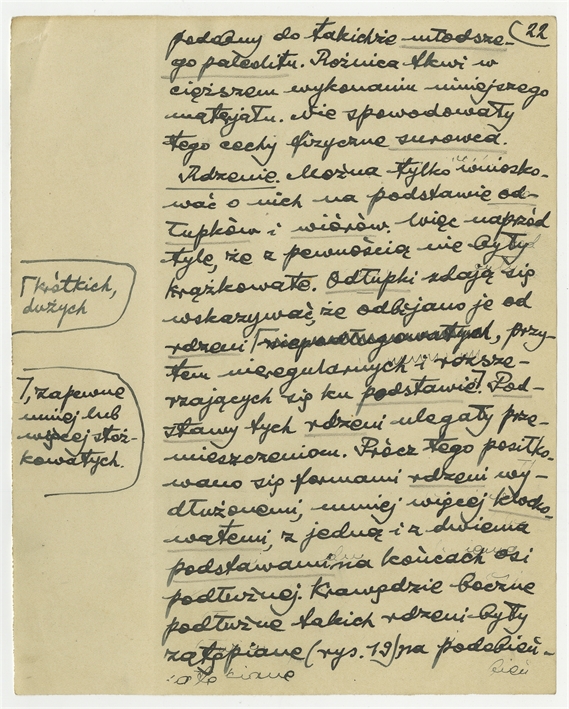 22
podobny do takichże młodsze-
go paleolitu. Różnica tkwi w
cięższem wykonaniu mniejszego
materjału. Nie spowodowały
tego cechy fizyczne surowca.
Rdzenie. Można tylko wniosko-
wać o nich na podstawie od-
łupków i wiórów. Więc naprzód
tyle, że z pewnością nie były
krążkowate. Odłupki zdają się
wskazywać, że odbijano je od
rdzeni ⌈ niepodługowatych, przy-
tem nieregularnych i rozsze-
rzających się ku podstawie⌉. Pod-
stawy tych rdzeni ulegały prze-
mieszczeniom. Prócz tego posiłko-
wano się formami rdzeni wy-
dłużonemi, mniej więcej kłodo-
watemi, z jedną i z dwiema
podstawami na końcach osi
podłużnej. Krawędzie boczne
podłużne takich rdzeni były
zatępiane (rys. 19) na podobień-
⌈ krótkich,
dużych
⌉, zapewne
mniej lub
więcej stoż-
kowatych.